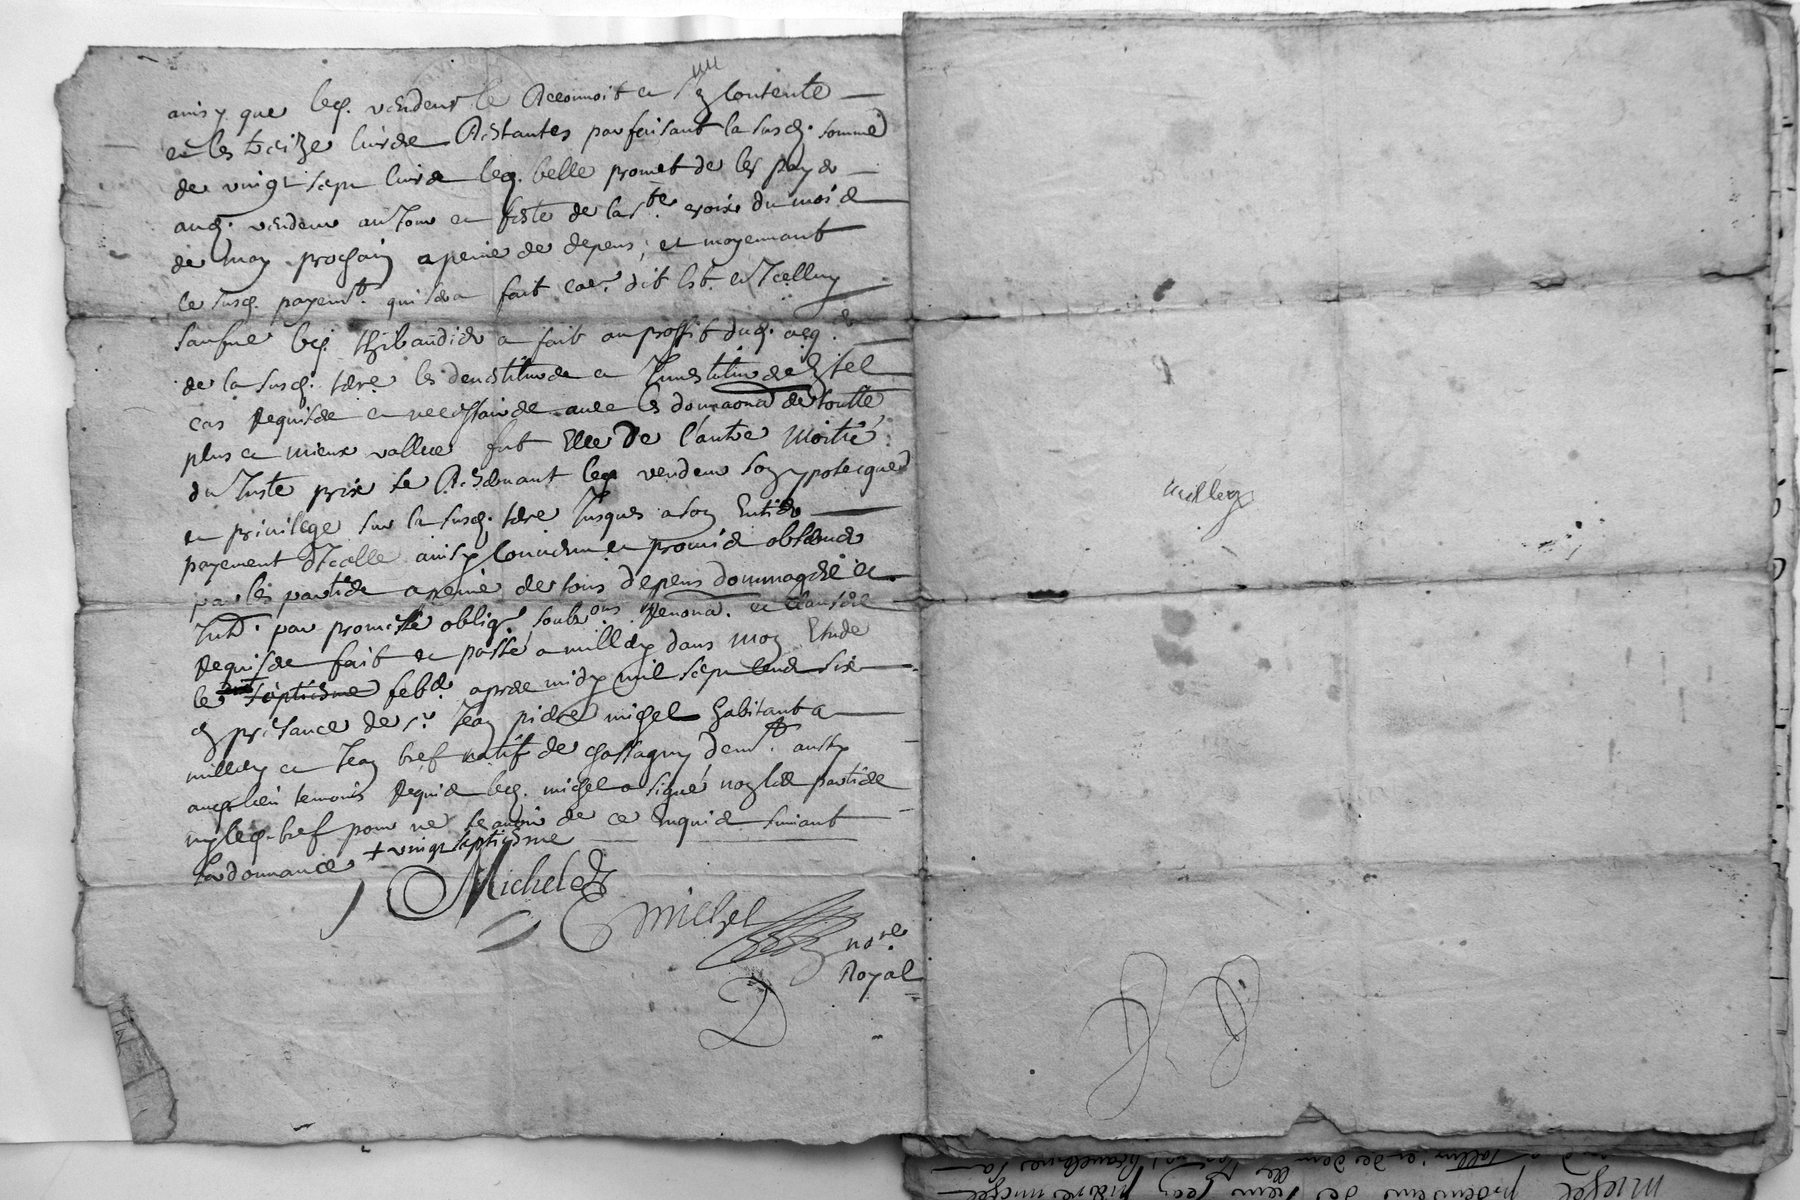 ainsy que led. vendeur le Reconnoit et s'en contente
et les treize livres Restantes parfaisant la susd. somme
de vingt sept livres led. belle promet de les payer
aud. vendeur au Jour et feste de la Ste. croix du mois
de may prochain a peine de depens, et moyennant
le susd. payemt. qui sera fait come. dit Est. et Icelluy
saufue led. thibaudier a fait au proffit dud. acqr.
de la susd. terre les devestitures et Investitures En tel
cas Requises et necessaires avec les donnaons de toutte
plus et mieux vallue fut Elle De l'autre Moitié
du Juste prix se Reservant led. vendeur son ypotecque
et privilege sur la susd. terre Jusques a son Entier
payement d'Icelle ainsy convenu et promis observer
par les parties a peine de tous depens dommages et
Intt. par promesse obligé soubons. Renona. et clauses
Requises fait et passé a millery dans mon Etude
le septiesme febr. apres midy mil sept cend six
En presance de sr. Jean pierre michel habitant a
millery et Jean bref natif de chassagny demt. aussy
aud. lieu temoins Requis led. michel a signé non les parties
ny led. bref pour ne scavoir de ce Enquis suivant
l'ordonnance + vingt septiesme
Michel
michel
nore.
Royal
D
millery